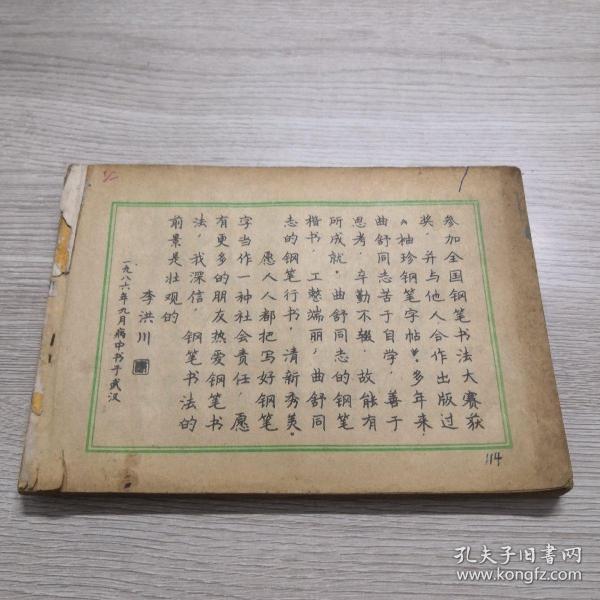 参加全国钢笔书法大赛获
奖，并与他人合作出版过
《袖珍钢笔字帖》。多年来，
曲舒同志苦于自学，善于
思考，辛勤不辍，故能有
所成就。曲舒同志的钢笔
楷书，工整端丽，曲舒同
志的钢笔行书，清新秀美。
愿人人都把写好钢笔
字当作一种社会责任，愿
有更多的朋友热爱钢笔书
法，我深信，钢笔书法的
前景是壮观的
李洪川
一九八六年九月病中书于武汉
114
孔夫子旧书网
www.kongfz.com